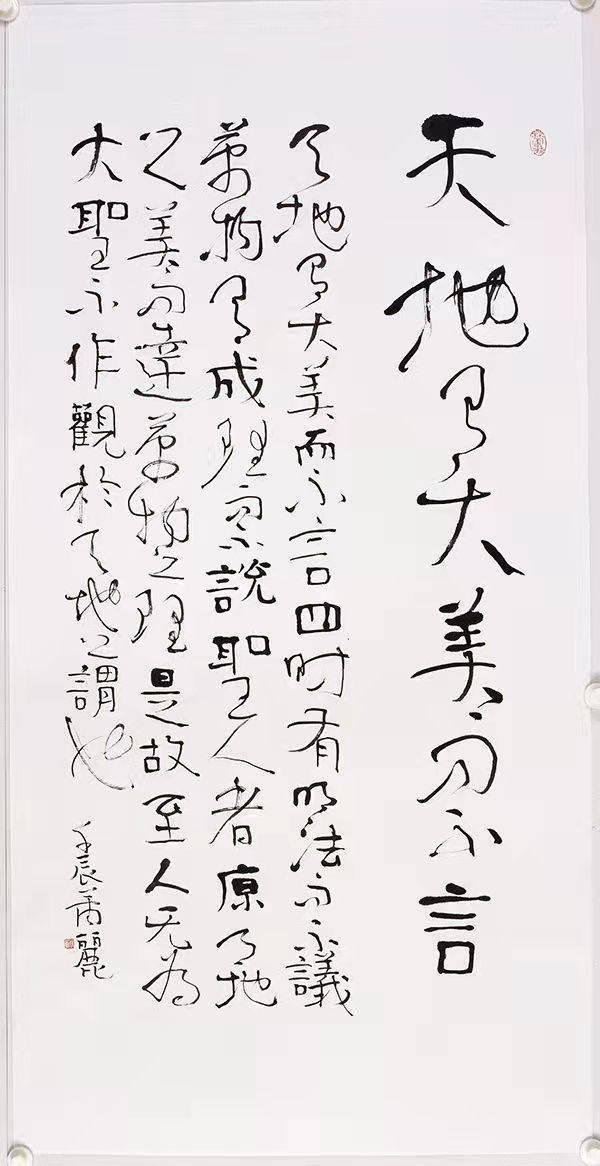 天地有大美而不言
天地有大美而不言四时有明法而不議
萬物有成理而不説聖人者原天地
之美而達萬物之理是故至人无為
大聖不作觀於天地之謂也
壬辰麗